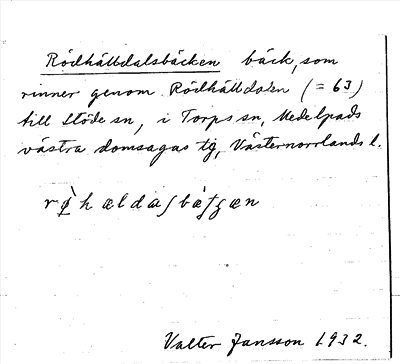 Rödhälldalsbäcken bäck, som
rinner genom Rödhälldalen (= 63)
till Stöde sn, i Torps sn, Medelpads
västra domsagas tg, Västernorrlands l.
rø̀hældasbàʃʒæn
Valter Jansson 1932.